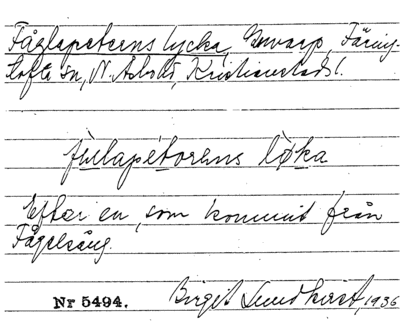 Fåglapeterns lycka, Smarp, Färing-
tofta sn, N. Åsbo hd, Kristianstads l.
fúlapétorens løka
Efter en, som kommit från
Fågelsång.
Nr 5494. Birgit Sundkvist, 1936